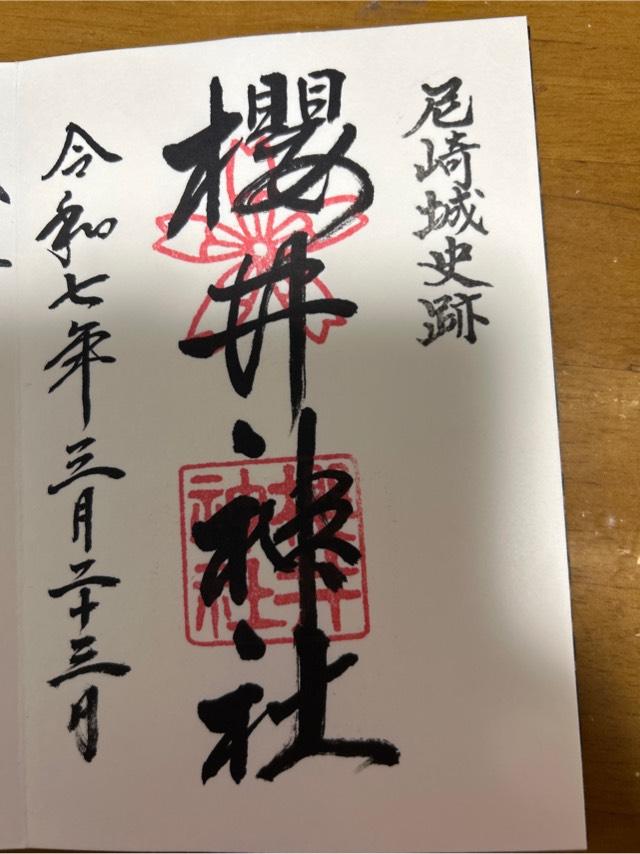 尼崎城史跡
櫻井神社
櫻井
神社
令和七年三月二十三日